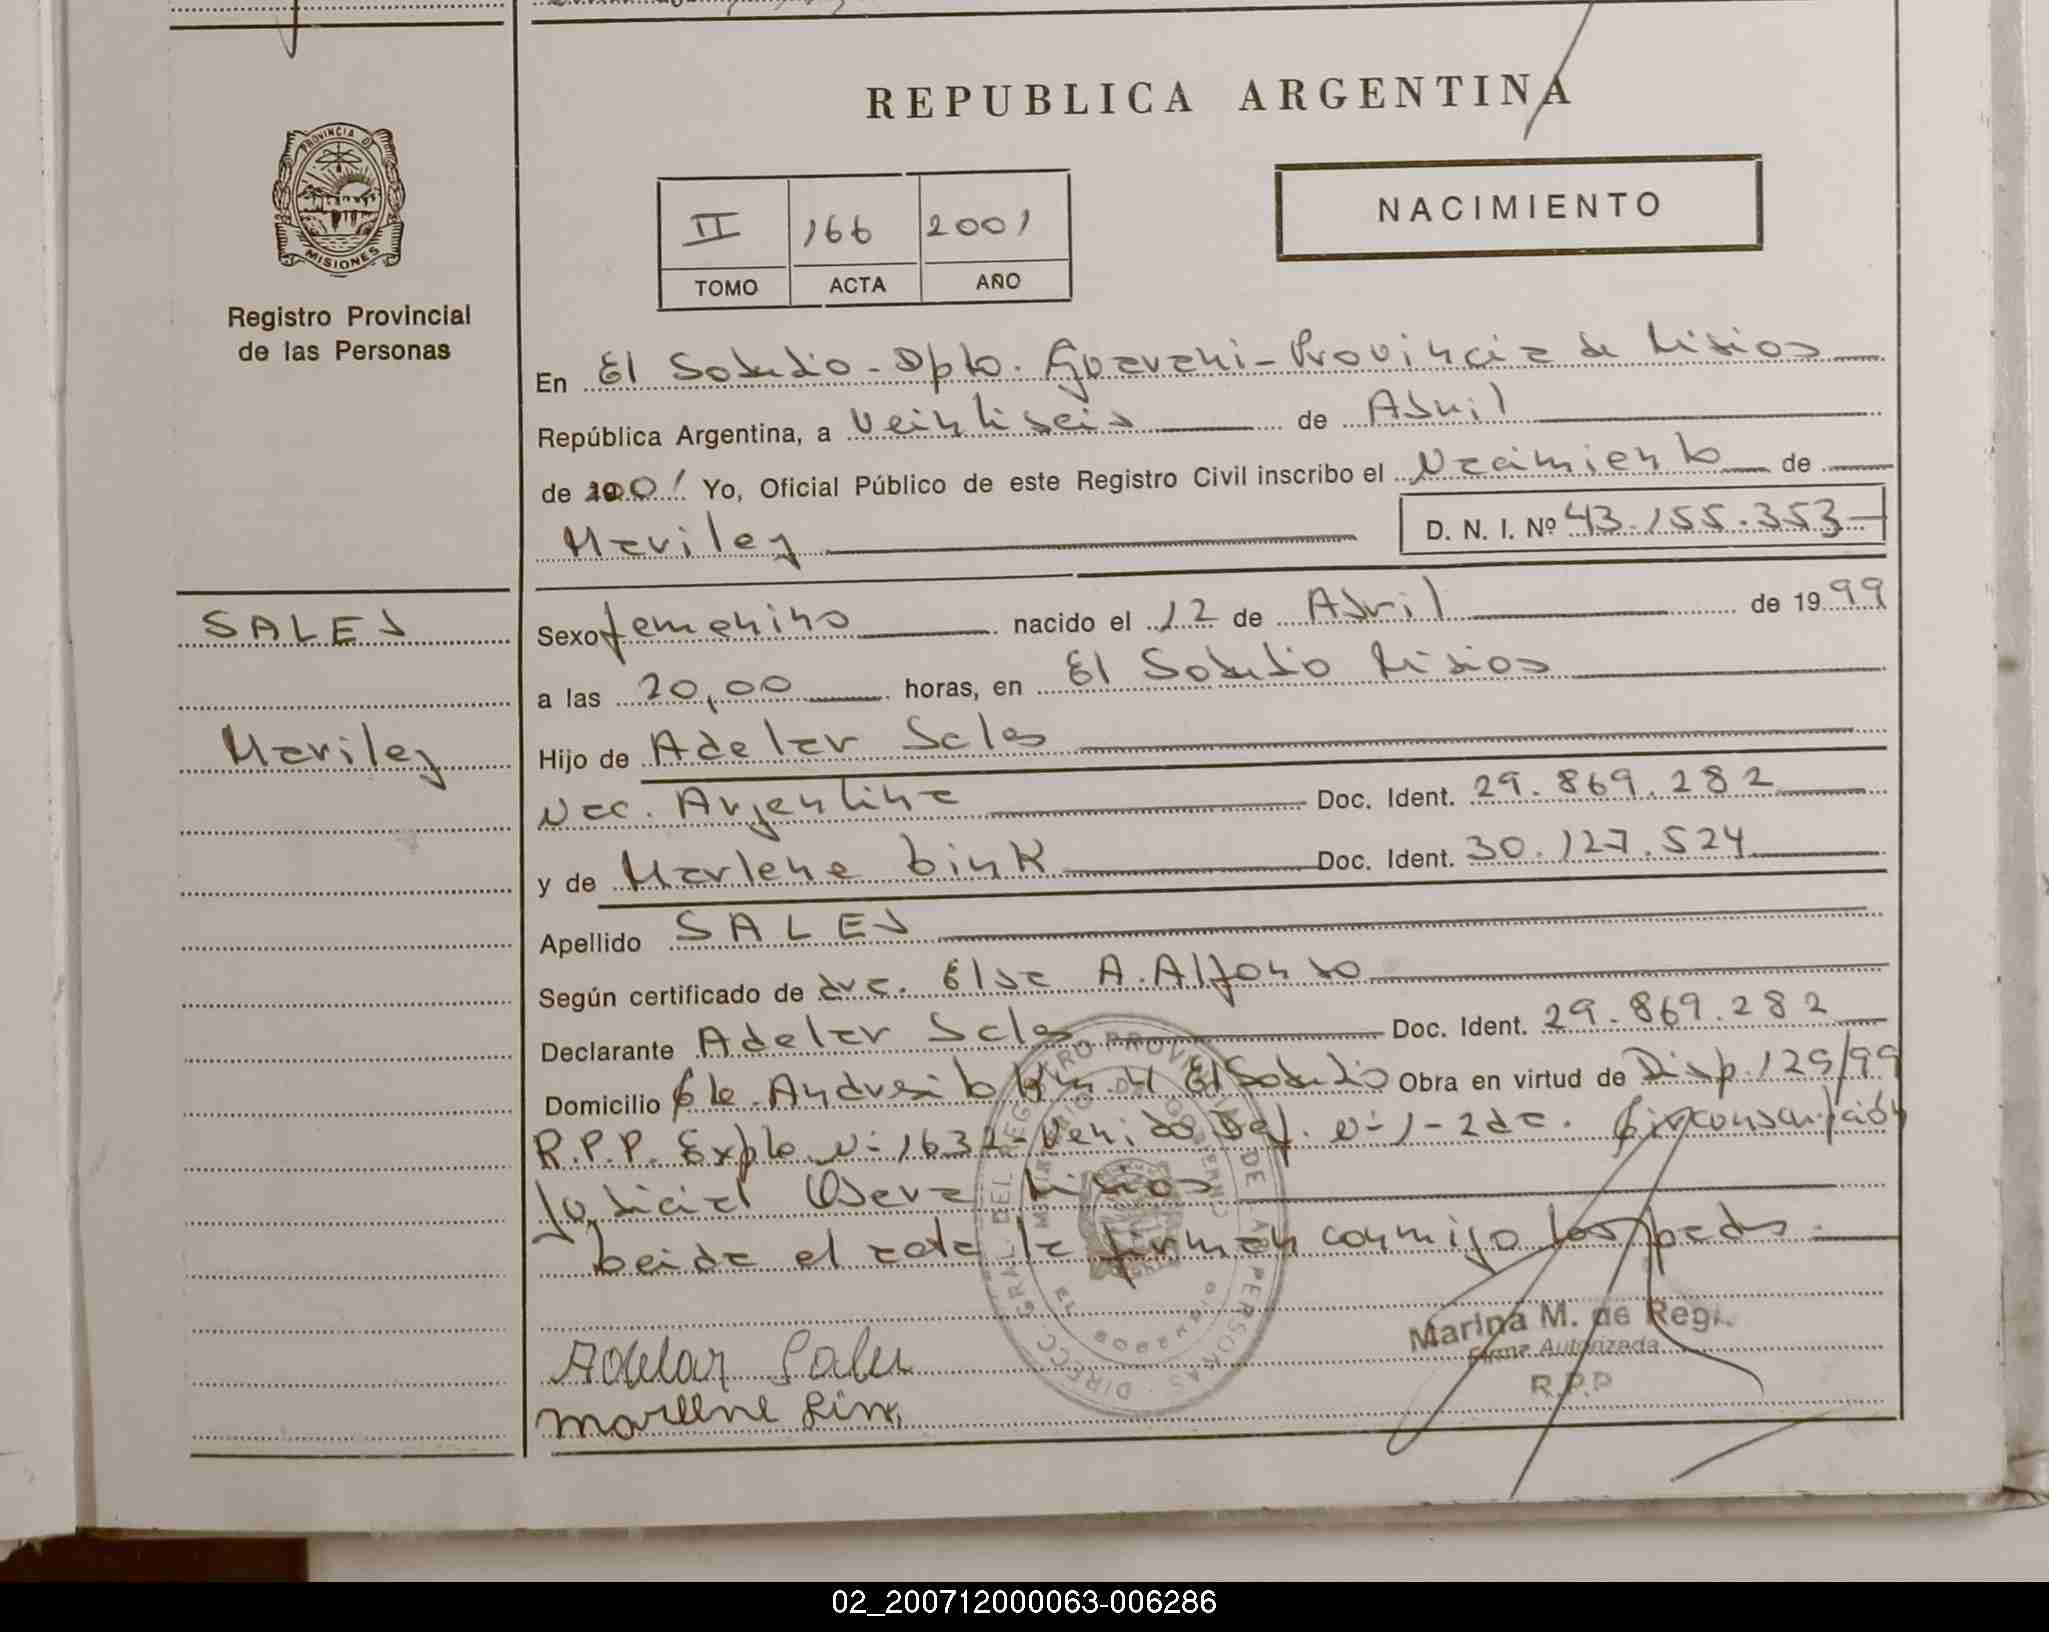 REPUBLICA ARGENTINA
PROVINCIA DE
MISIONES
Registro Provincial
de las Personas
II 166 2001
TOMO ACTA AÑO
NACIMIENTO
En El Soberbio - Dpto. Guarani - Provincia de Misiones
República Argentina, a Veintiseis de Abril
de 2001 Yo, Oficial Público de este Registro Civil inscribo el Nacimiento de
Mariley D. N. I. Nº 43.155.353
SALES
Mariley
Sexo femenino nacido el 12 de Abril de 1999
a las 20,00 horas, en El Soberbio Misiones
Hijo de Adelar Sales
Nac. Argentina Doc. Ident. 29.869.282
y de Marlene Link Doc. Ident. 30.127.524
Apellido SALES
Según certificado de dra. Elsa A. Alfonso
Declarante Adelar Sales Doc. Ident. 29.869.282
Domicilio Cte. Andresito El Soberbio Obra en virtud de Disp. 129/99
R.P.P. Expte Nº 1632 Def. Nº 1 - 2da. Circunscripción
Judicial Obera Misiones
Leida el acta la firman conmigo los pads.
Marina M. de Regi.
Firma Autorizada
R.P.P
Adelar Sales
Marlene Link
02_200712000063-006286